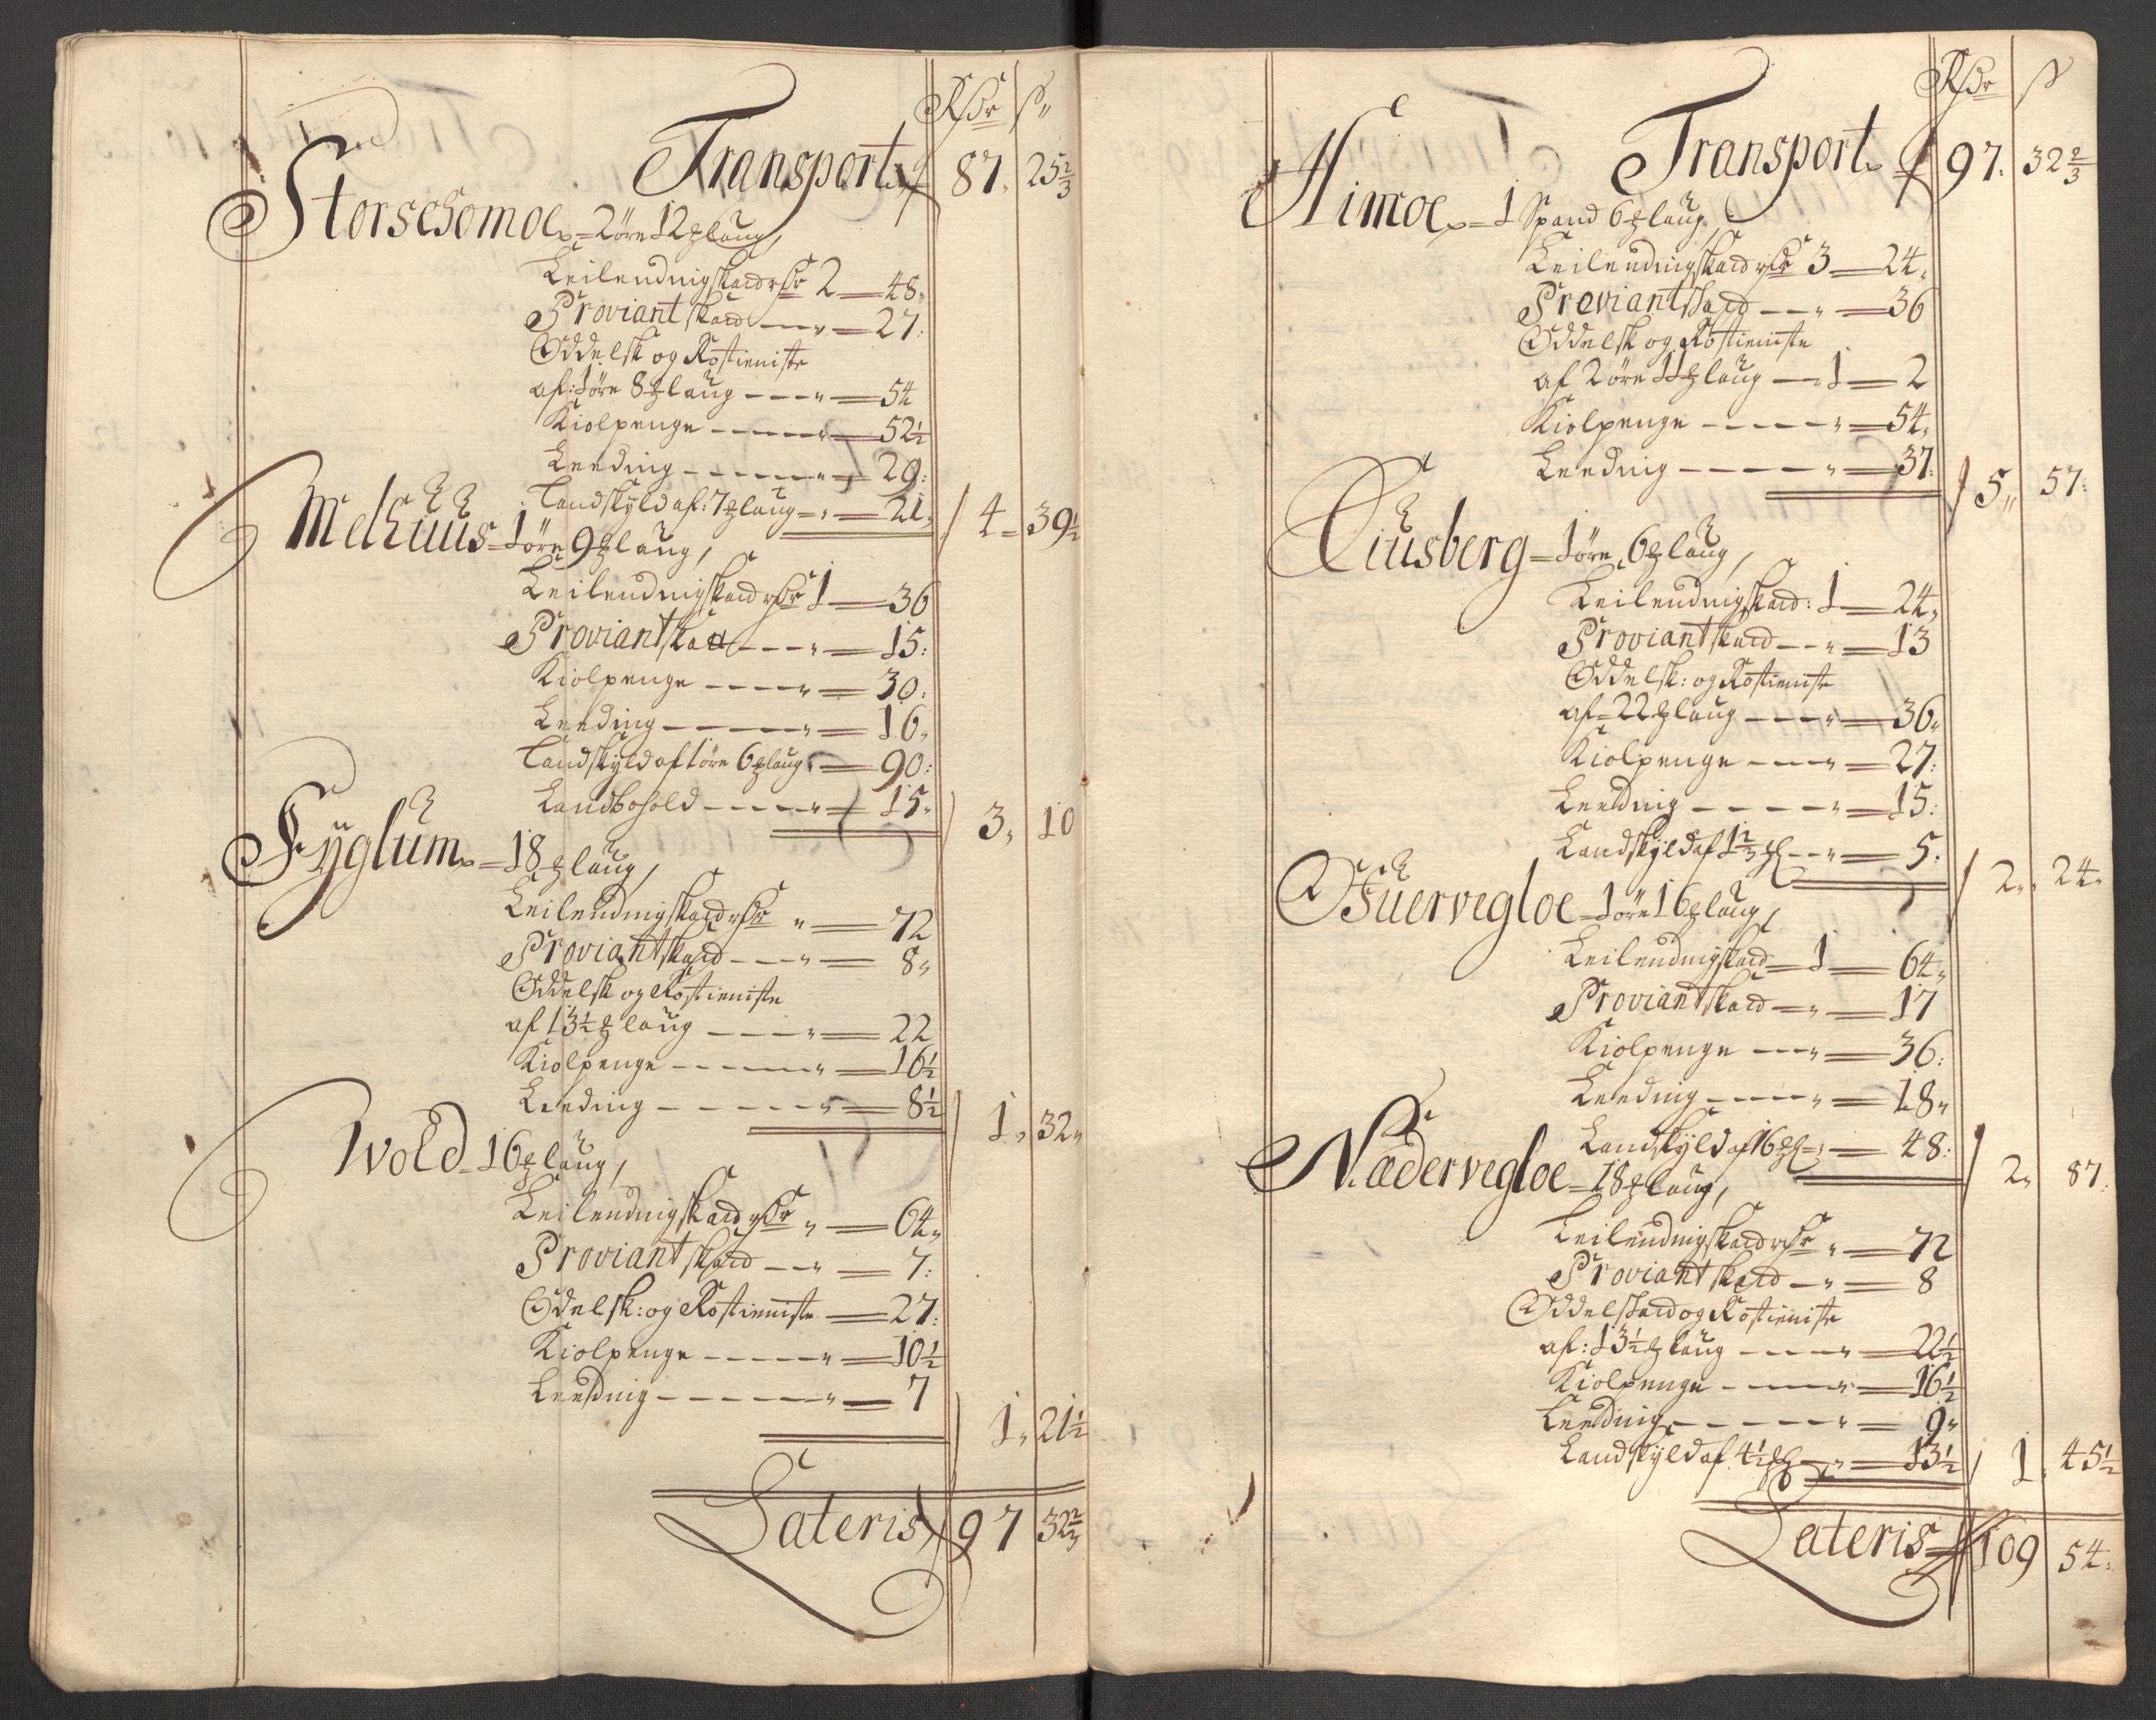 Rdr ß
Transport 87. 25 2/3
Storsehomoe = 2 öre 12 ꝑlaug,
Leilendingskard rdr 2 — 48.
Proviantskard — " — 27.
Oddelsk og Rostieniste
af: 1 öre 8 ꝑlaug — " — 54
Kiolpenge — " — 52½
Leeding — " — 29:
Landskyld af: 7 ꝑlaug — " — 21. 4 — 39½
Melhuus = 1 öre 9 ꝑlaug,
Leilendingskard rdr 1 — 36
Proviantskard — " — 15:
Kiolpenge — " — 30:
Leeding — " — 16.
Landskyld af 1 öre 6 ꝑlaug — 90:
Landbohold — " — 15. 3. 10
Fyglum = 18 ꝑlaug,
Leilendingskard rdr " — 72
Proviantskard — " — 8.
Oddelsk og Rostieniste
af 13½ ꝑlaug — " — 22
Kiolpenge — " — 16½
Leeding — " — 8½ 1. 32.
Wold = 16 ꝑlaug,
Leilendingskard rdr " — 64.
Proviantskard — " — 7:
Odelsk: og Rostieniste — 27:
Kiolpenge — " — 10½
Leeding — " — 7
1. 21½
Lateris 97 32 2/3
Rdr ß
Transport 97. 32 2/3
Himoe = 1 Spand 6 ꝑlaug,
Leilendingskard rdr 3 — 24.
Proviantskard — " — 36
Oddelsk og Rostieniste
af 2 öre 11 ꝑlaug — 1 — 2
Kiolpenge — " — 54.
Leeding — " — 37. 5. 57:
Liusberg = 1 öre 6 ꝑlaug,
Leilendingskard: 1 — 24.
Proviantskard — " — 13
Oddelsk: og Rostieniste
af = 22 ꝑlaug — " — 36.
Kiolpenge — " — 27:
Leeding — " — 15:
Landskyld af 1 2/3 ꝑl — " — 5. 2. 24.
Öfuervegloe = 1 öre 16 ꝑlaug,
Leilendingskard — 1 — 64.
Proviantskard — " — 17
Kiolpenge — " — 36:
Leeding — " — 18.
Landskyld af 16 ꝑl — " — 48: 2. 87.
Nædervegloe = 18 ꝑlaug,
Leilendingskard rdr " — 72
Proviantskard — " — 8
Oddelskard og Rostieniste
af: 13½ ꝑlaug — " — 22½
Kiolpenge — " — 16½
Leeding — " — 9.
Landskyld af 4½ ꝑl — " — 13½ 1. 45½
Lateris 109 54.